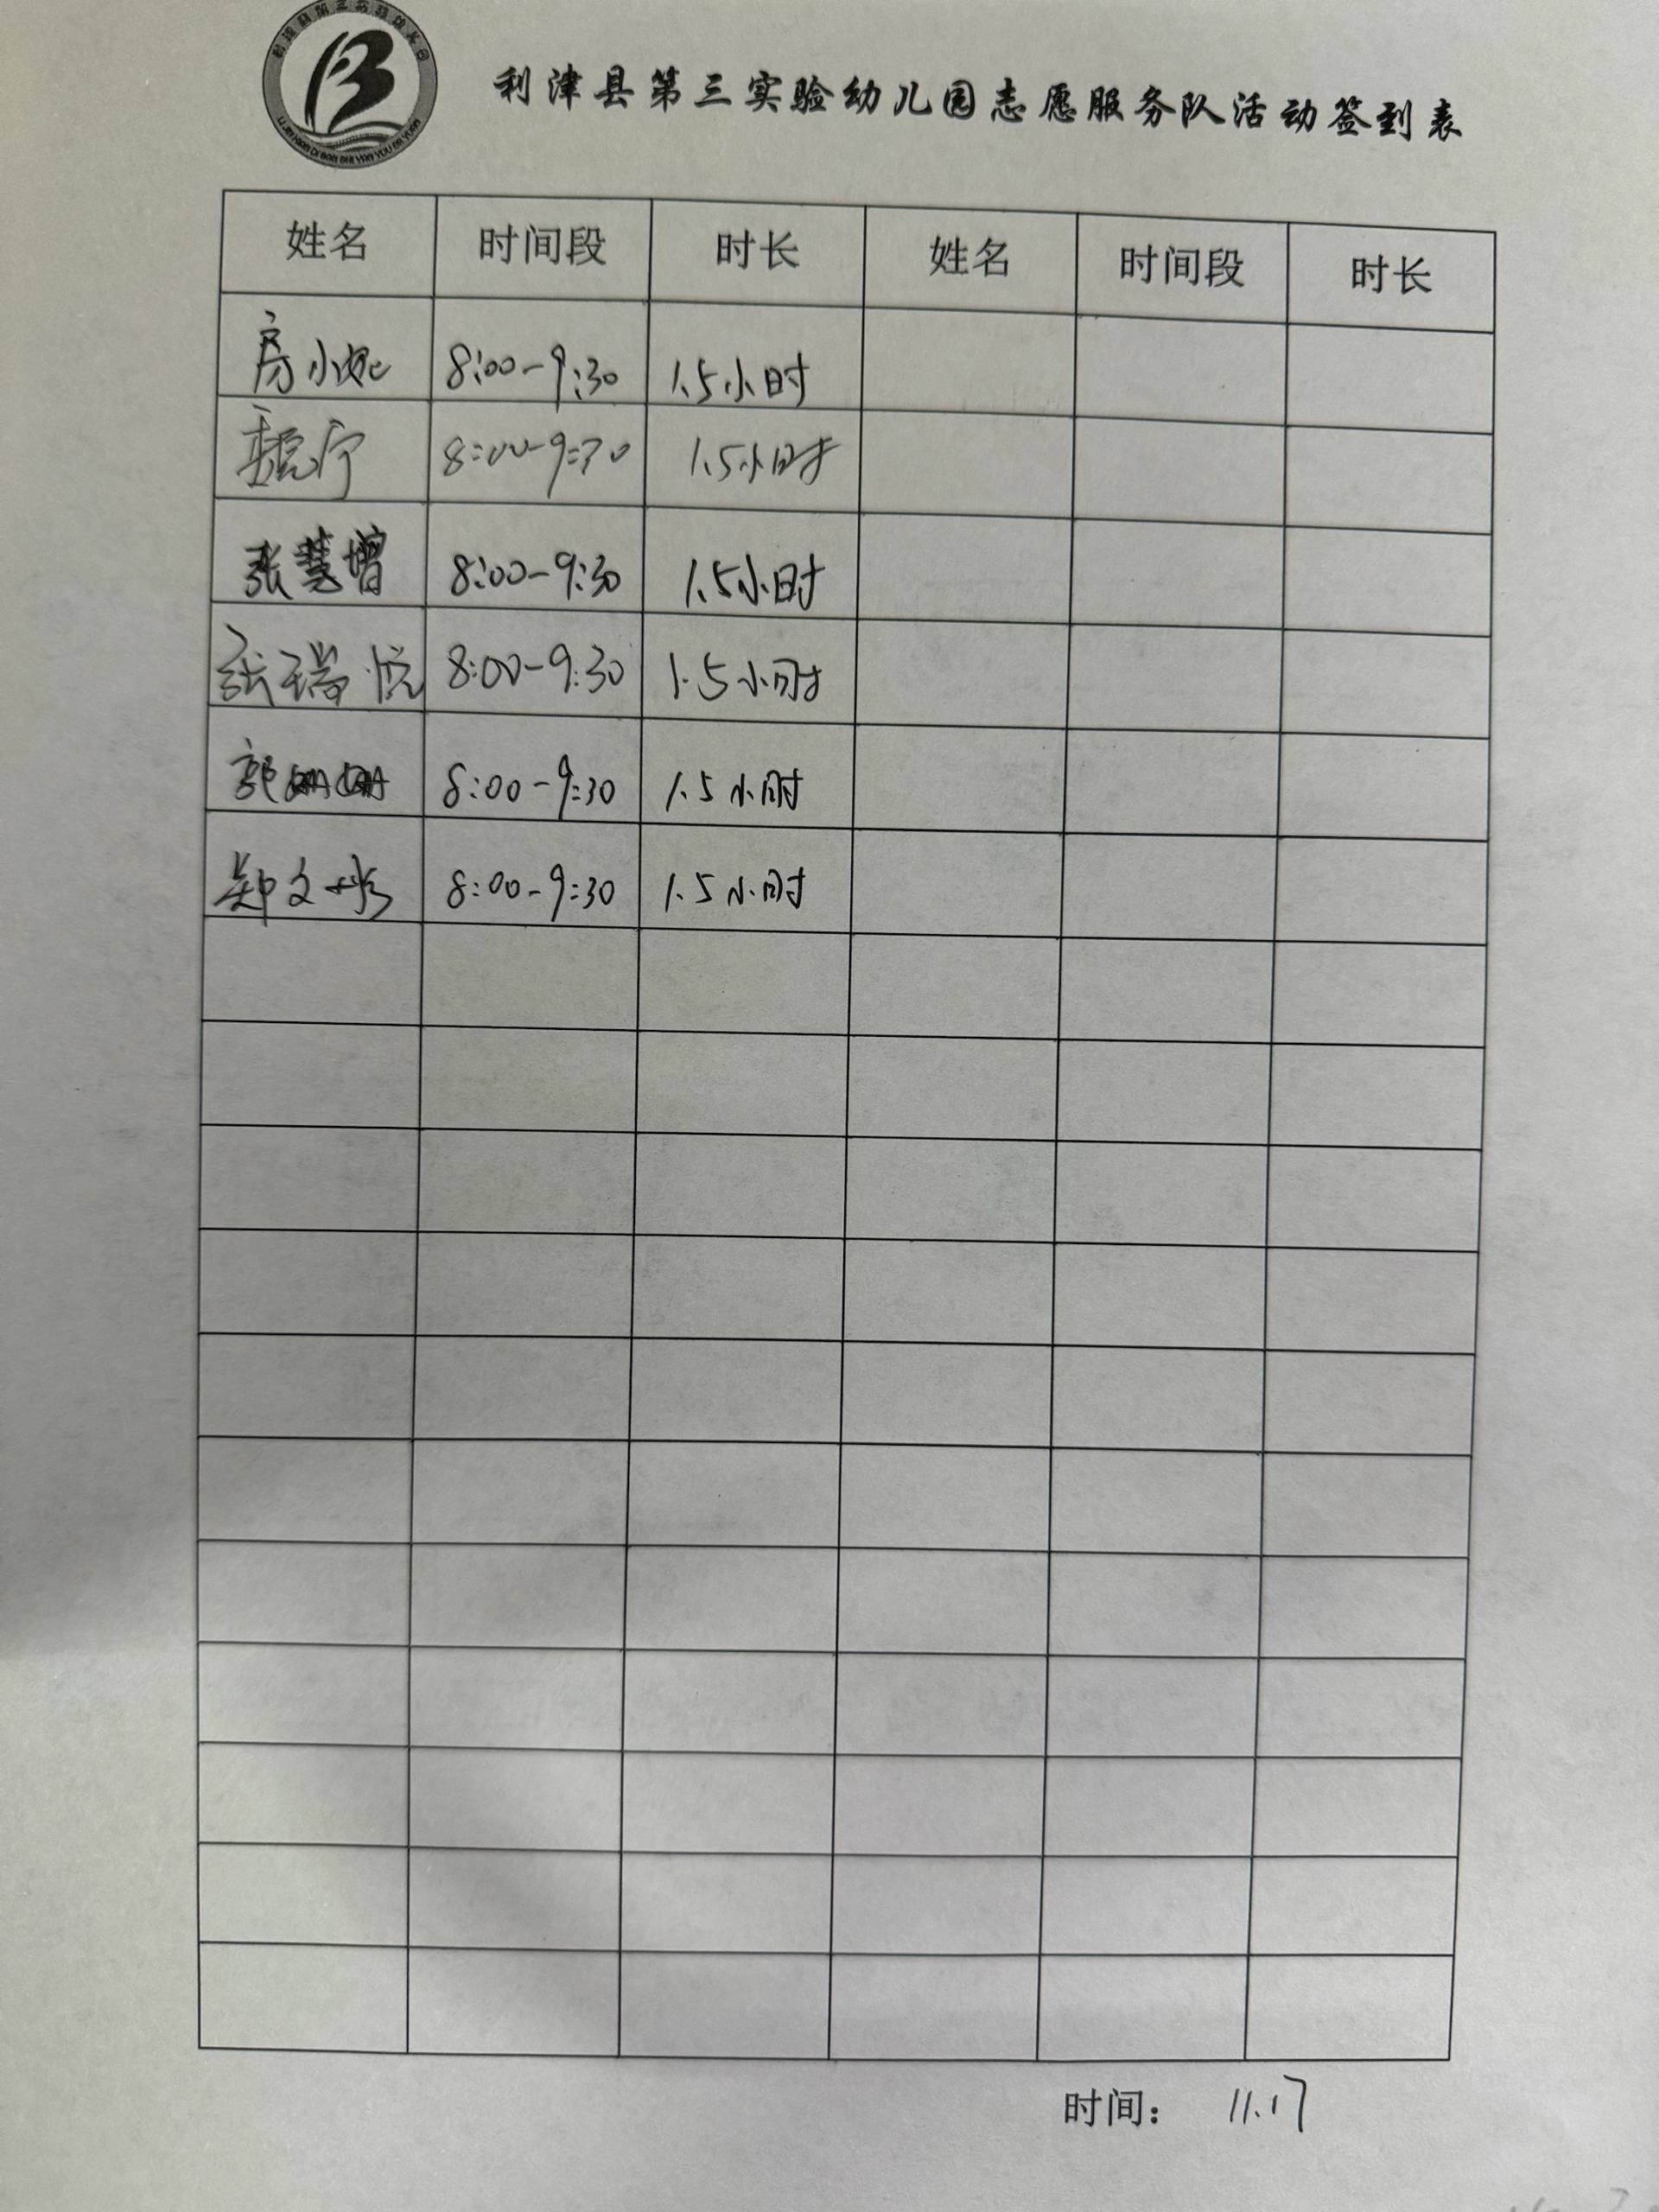 利津县第三实验幼儿园志愿服务队活动签到表
姓名 时间段 时长 姓名 时间段 时长
房小妮 8:00-9:30 1.5小时
8:00-9:30 1.5小时
张慧增 8:00-9:30 1.5小时
张瑞悦 8:00-9:30 1.5小时
郭姗姗 8:00-9:30 1.5小时
郑文彬 8:00-9:30 1.5小时
时间： 11.17